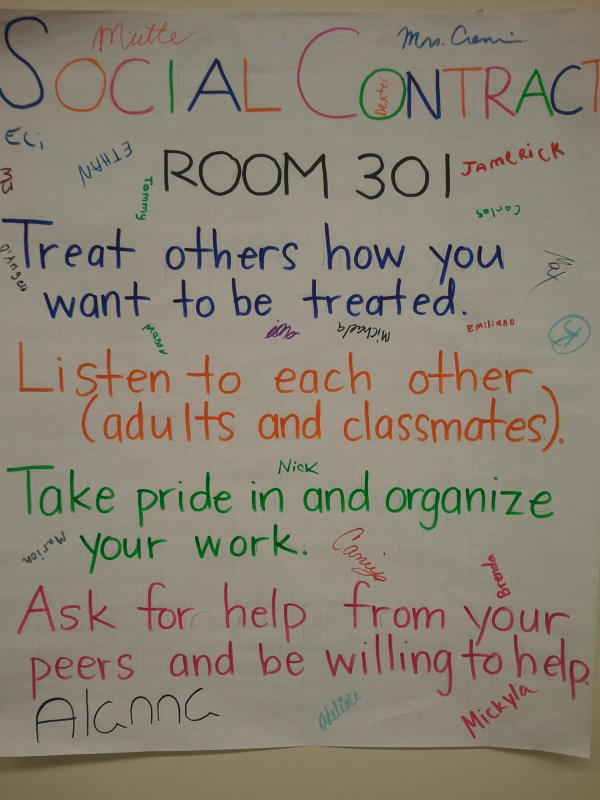 Mrs.
SOCIAL CONTRACT
Dexter
Eli
ETHAN
ROOM 301
JAMERICK
MJ
Tommy
Carlos
Treat others how you
D'Angelo
Max
want to be treated.
Michaela
Emiliano
Listen to each other
(adults and classmates).
Nick
Take pride in and organize
your work.
Marion
Brenda
Ask for help from your
peers and be willing to help.
Alanna
Adeline
Mickyla